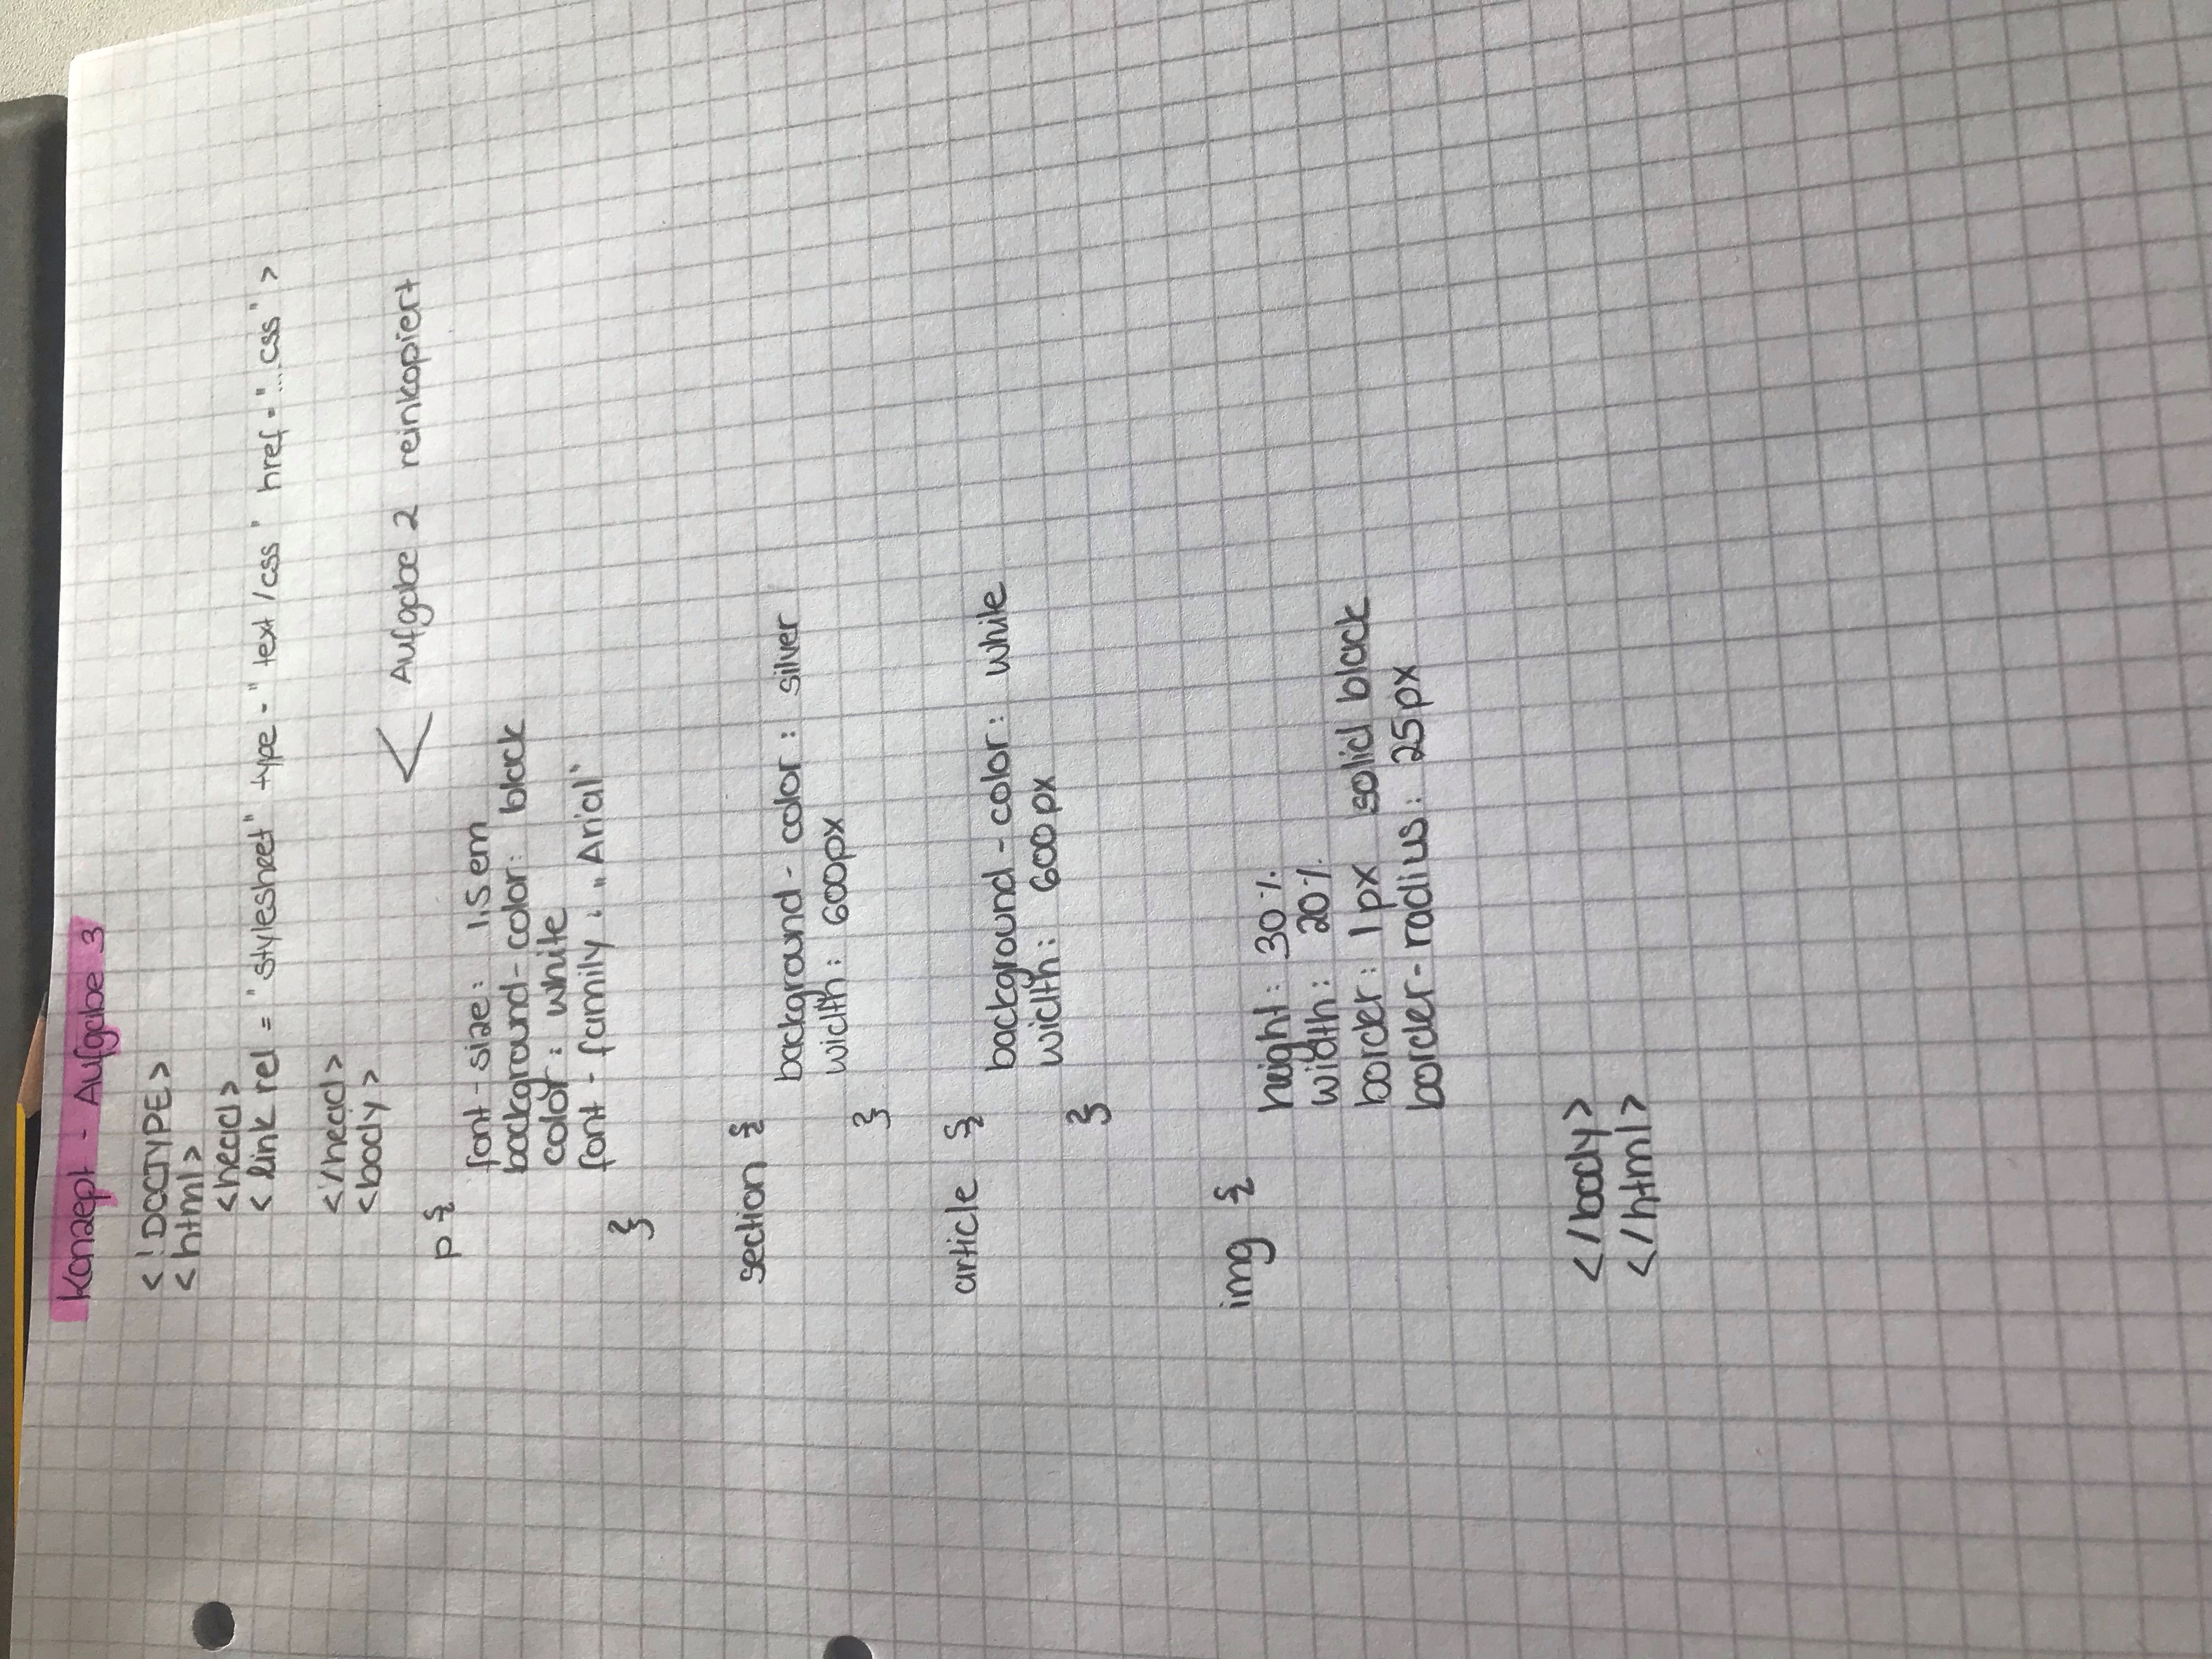 Konzept - Aufgabe 3
<!DOCTYPE>
<html>
<head>
<link rel = "stylesheet" type = "text/css" href = "....css">
</head>
<body>
< Aufgabe 2 reinkopiert
p {
font-size: 1.5em
background-color: black
color: white
font-family: „Arial“
}
section {
background-color: silver
width: 600px
}
article {
background-color: white
width: 600px
}
img {
height: 30%
width: 20%
border: 1px solid black
border-radius: 25px
</body>
</html>